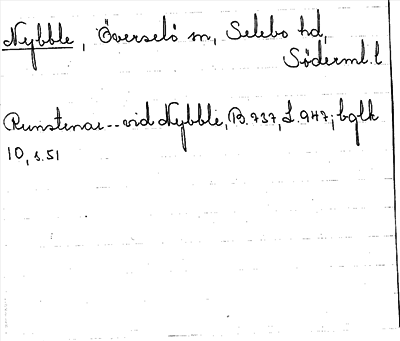 Nybble, Överselö sn, Selebo hd,
Söderml.l
Runstenar -- vid Nybble, B.737, L.947; bglk
10, s.51